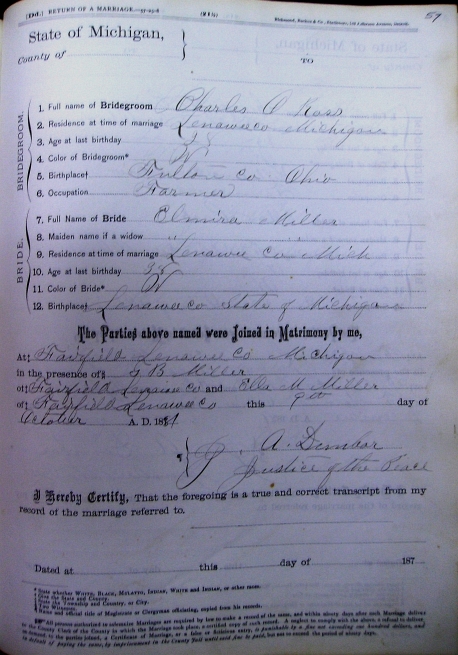 [Dd.] RETURN OF A MARRIAGE.
59
State of Michigan,
County of
TO
BRIDEGROOM.
1. Full name of Bridegroom Charles O Ross
2. Residence at time of marriage Lenawee co Michigan
3. Age at last birthday
4. Color of Bridegroom* W
5. Birthplace† Fulton co Ohio
6. Occupation Farmer
BRIDE.
7. Full Name of Bride Elmira Miller
8. Maiden name if a widow "
9. Residence at time of marriage Lenawee Co Mich
10. Age at last birthday
11. Color of Bride* W
12. Birthplace† Lenawee co State of Michigan
The Parties above named were Joined in Matrimony by me,
At‡ Fairfield Lenawee Co Michigan
in the presence of§ G B Miller
of‡ Fairfield Lenawee Co and Ella M Miller
of‡ Fairfield Lenawee Co this 9th day of
October A. D. 18
¶ A. Dunbar
Justice of the Peace
I Hereby Certify, That the foregoing is a true and correct transcript from my
record of the marriage referred to.
Dated at this day of 187
* State whether WHITE, BLACK, MULATTO, INDIAN, WHITE and INDIAN, or other races.
† Give the State and County.
‡ State the Township and County, or City.
§ Two Witnesses.
¶ Name and official title of Magistrate or Clergyman officiating, copied from his records.
All persons authorized to solemnize Marriages are required by law to make a record of the same, and within ninety days after such Marriage deliver
to the County Clerk of the County in which the Marriage took place, a certified copy of such record. A neglect to comply with the above, a refusal to deliver,
on demand, to the parties joined, a Certificate of Marriage, or a false or fictitious entry, is punishable by a fine not exceeding one hundred dollars, and
in default of paying the same, by imprisonment in the County Jail until said fine be paid, but not to exceed the period of ninety days.